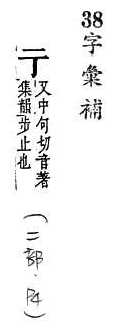 38字彙補
亍
又中句切音著
集韻步止也
(二部, P4)